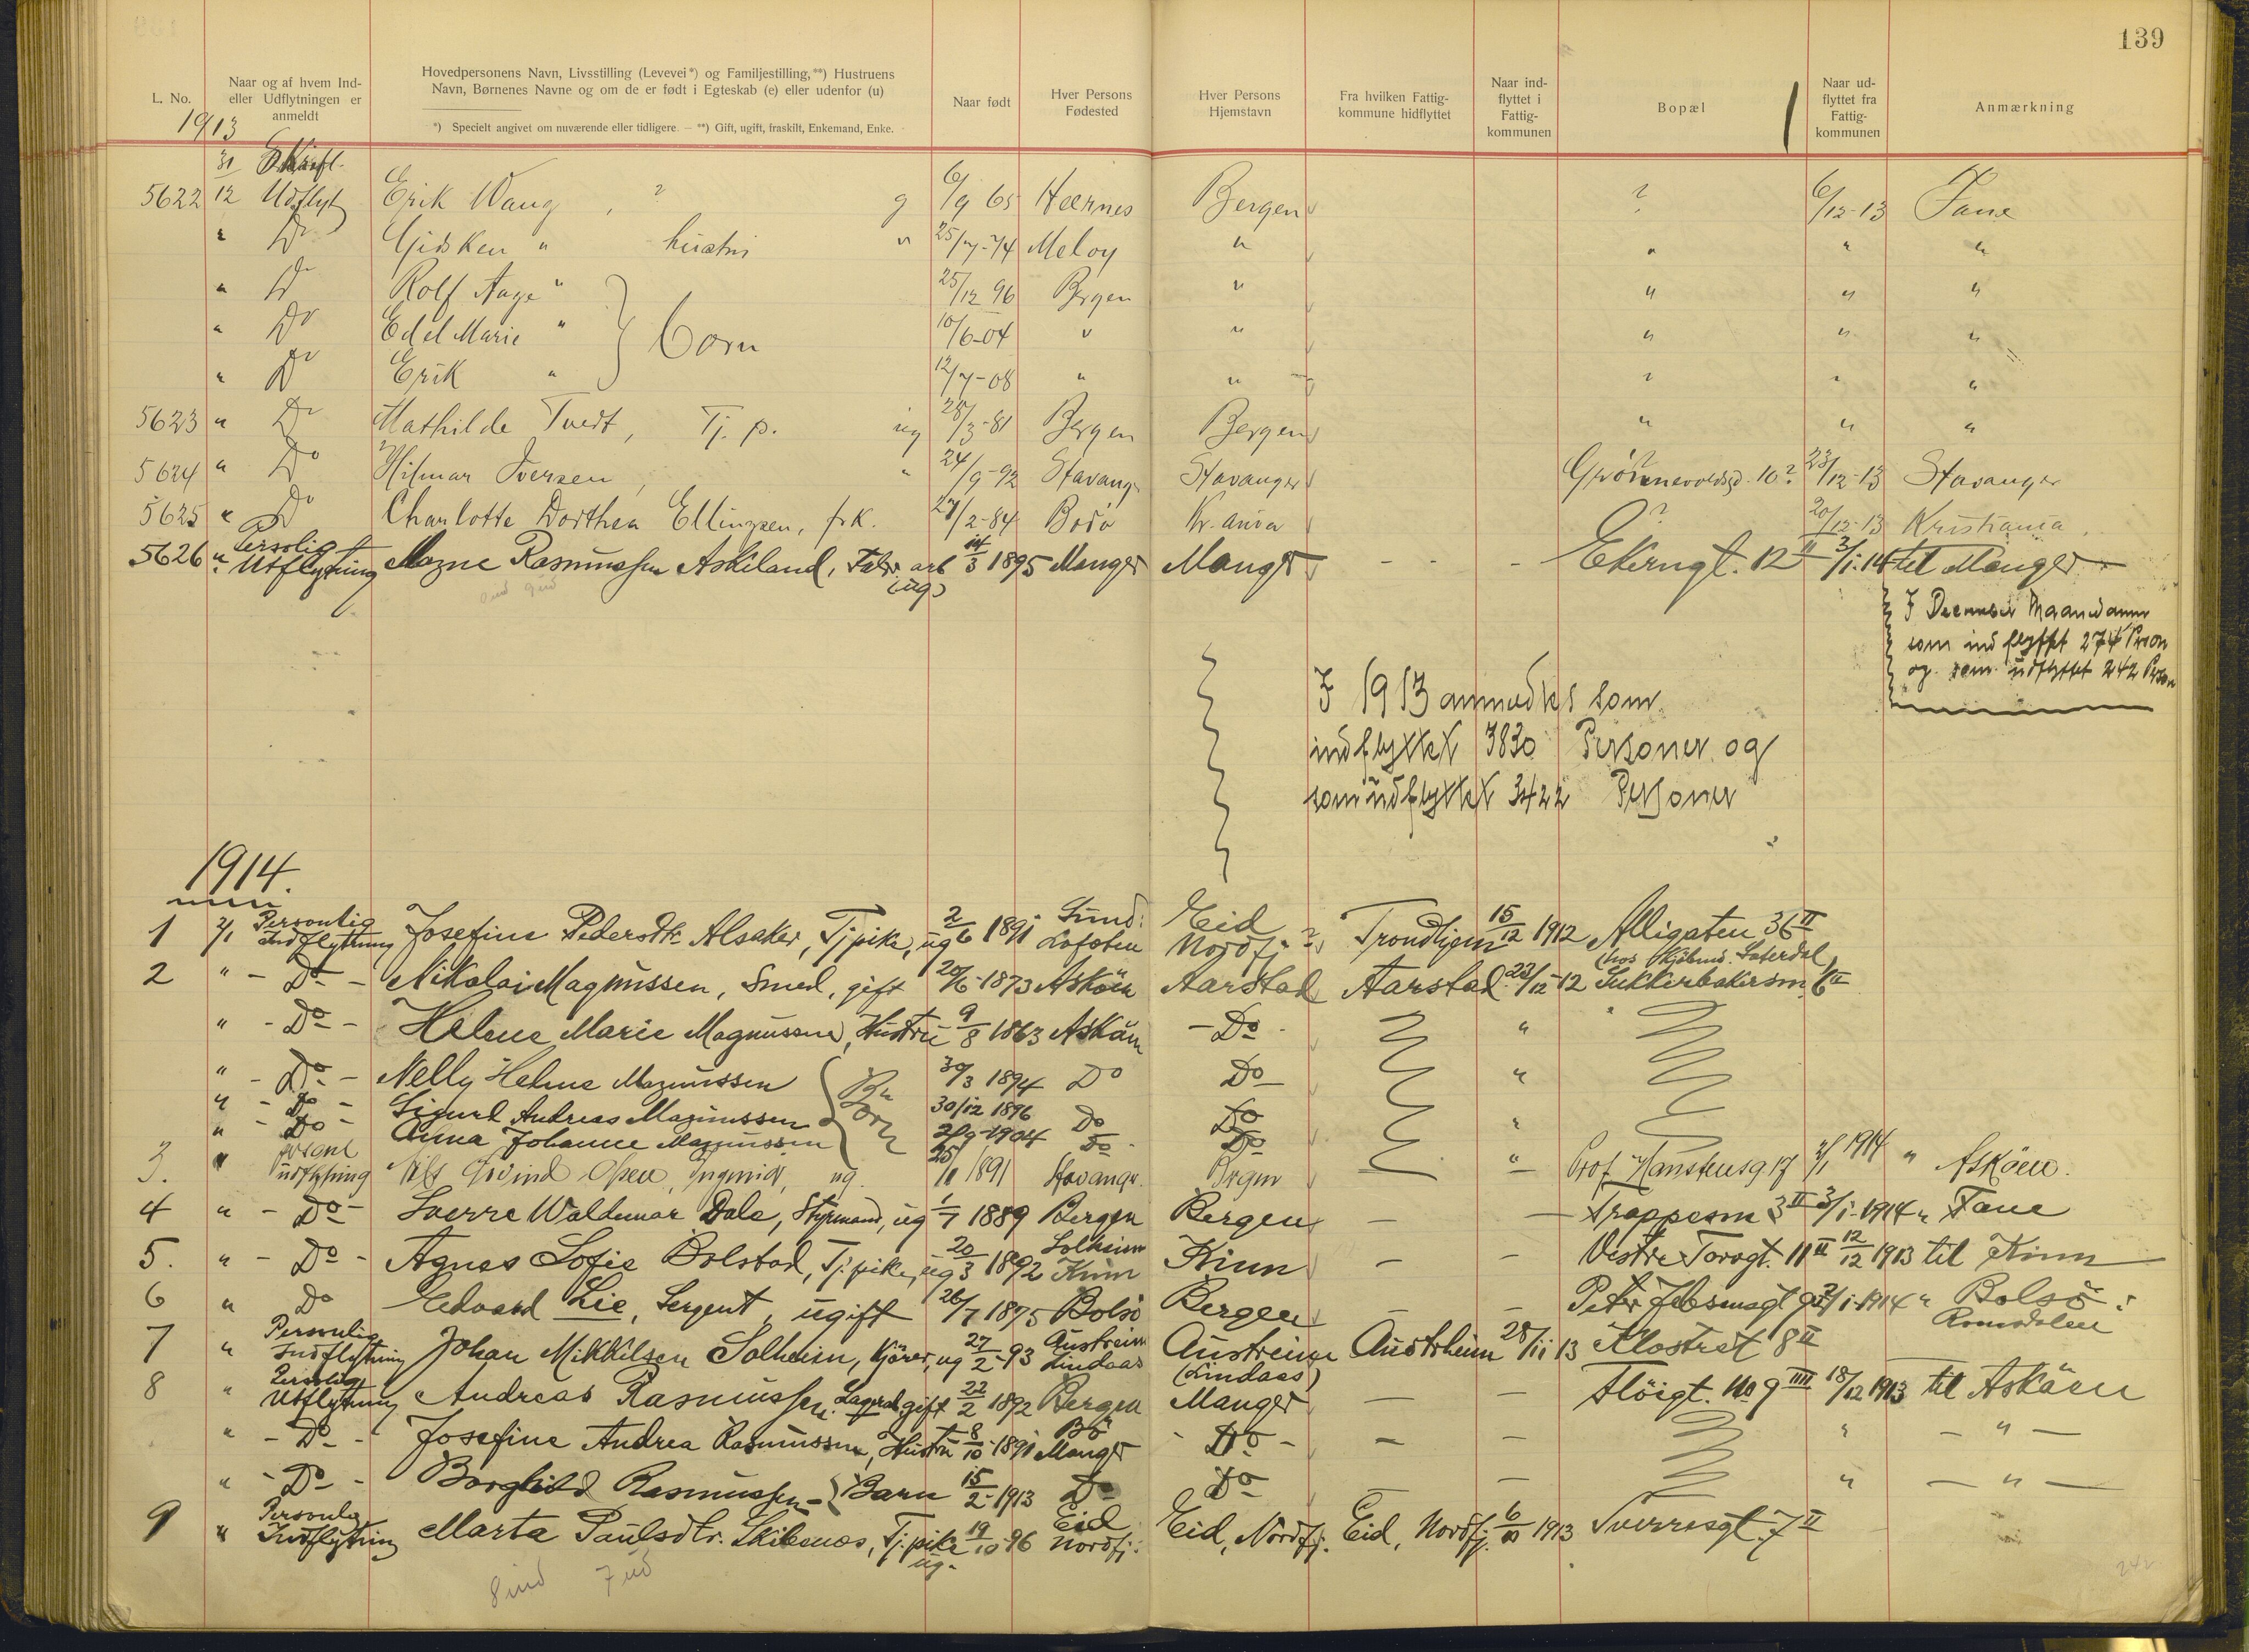 139
L. No.
Naar og af hvem Ind- eller Udflytningen er anmeldt
Hovedpersonens Navn, Livsstilling (Levevei*) og Familjestilling,**) Hustruens Navn, Børnenes Navne og om de er født i Egteskab (e) eller udenfor (u)
*) Specielt angivet om nuværende eller tidligere. — **) Gift, ugift, fraskilt, Enkemand, Enke.
Naar født
Hver Persons Fødested
Hver Persons Hjemstavn
Fra hvilken Fattig- kommune hidflyttet
Naar ind- flyttet i Fattig- kommunen
Bopæl
Naar ud- flyttet fra Fattig- kommunen
Anmærkning
1913
5622 31/12 Udflyt Erik Wang, ? g 6/9 65 Bergen ? 6/12-13 Fane
" Do Gidsken " hustru " 25/7-74 Meloy " " " "
" Do Rolf Aage " 25/12 96 Bergen " " " "
" Do Edel Marie " } barn 10/6-04 " " " " "
" Do Erik " 12/7-08 " " " " "
5623 " Do Mathilde Tvedt, Tj. p. ug 25/3-81 Bergen Bergen " " "
5624 " Do Hilmar Iversen, " 24/9-92 Stavang Stavanger 10? 23/12-13 Stavanger
5625 " Do Charlotte Dorthea Ellingsen, frk. 27/2-84 Bodö Kr.ania ? 20/12-13 Kristiania
5626 " Persolig Utflytning Magne Rasmussen Askeland, Fabr. arb (ug) 14/3 1895 Manger Manger - - - Ekerngt. 12 II 3/1.14 til Manger
I December Maaned anm
som ind flyttet 274 Person
og som udflyttet 242 Person
I 1913 anmeldtes som
indflyttet 3830 Personer og
som udflyttet 3422 Personer
1914.
1 2/1 Personlig Indflytning Josefine Pedersdtr. Alsaker, Tj pike, ug 2/6 1891 Lofoten Eid Nordfj. ? Trondhjem 15/12 1912 Alligaten 36 II
2 " - Do - Nikolai Magnussen, Smed, gift 20/6-1873 Asköen Aarstad Aarstad 23/12-12 Sukkerbakersm. 6 II
" - Do - Helene Marie Magnussen, Hustru 9/8 1863 Asköen - Do - "
" - Do - Nelly Helene Magnussen 30/3 1894 Do Do "
" - Do - Sigurd Andreas Magnussen } Börn 30/12 1896 Do Do "
" - Do - Anna Johanne Magnussen 1904 Do Do "
3. " udflytning Nils Eivind Ingeniör, ug. 1891 Stavanger. Bergen Prof. Hansteensg 17 2/1 1914 " Asköen.
4 " - Do - Sverre Waldemar Dale, Styrmand, ug 1/7 1889 Bergen Bergen - - Trappesm 3 II 3/1-1914 " Fane
5. " - Do - Agnes Sofie Bolstad, Tj. pike, ug 20/3 1892 Solheim Kinn Kinn - - Vestre Torvgt. 11 II 12/12 1913 til Kinn
6 " Do Edvard Lie, Sergent, ugift 26/7 1875 Bolsö Bergen - - Peter Jebsensgt 2/1-1914 " Bolsö Romsdalen
7 " Personlig Indflytning Johan Mikkelsen Solheim, Kjörer, ug 27/2-93 Austreim Lindaas Austreim (Lindaas) Austrheim 28/11 13 Klostret 8 II
8 " Personlig Utflytning Andreas Rasmussen, gift 22/2 1892 Bergen Manger - - Flöigt. No 9 IIII 18/12 1913 til Asköen
" - Do - Josefine Andrea Rasmussen, Hustru 8/10-1891 Bö Manger - Do - - - " - " -
" - Do - Borghild Rasmussen - { Barn 15/2-1913 Do Do - - " - " -
9 " Personlig Indflytning Marta Paulsdtr. Skibenes, Tj. pike ug. 19/10-96 Eid Nordfj. Eid, Nordfj. Eid, Nordfj. 6/10 1913 Sverresgt. 7 II
8 ind 7 ud
242